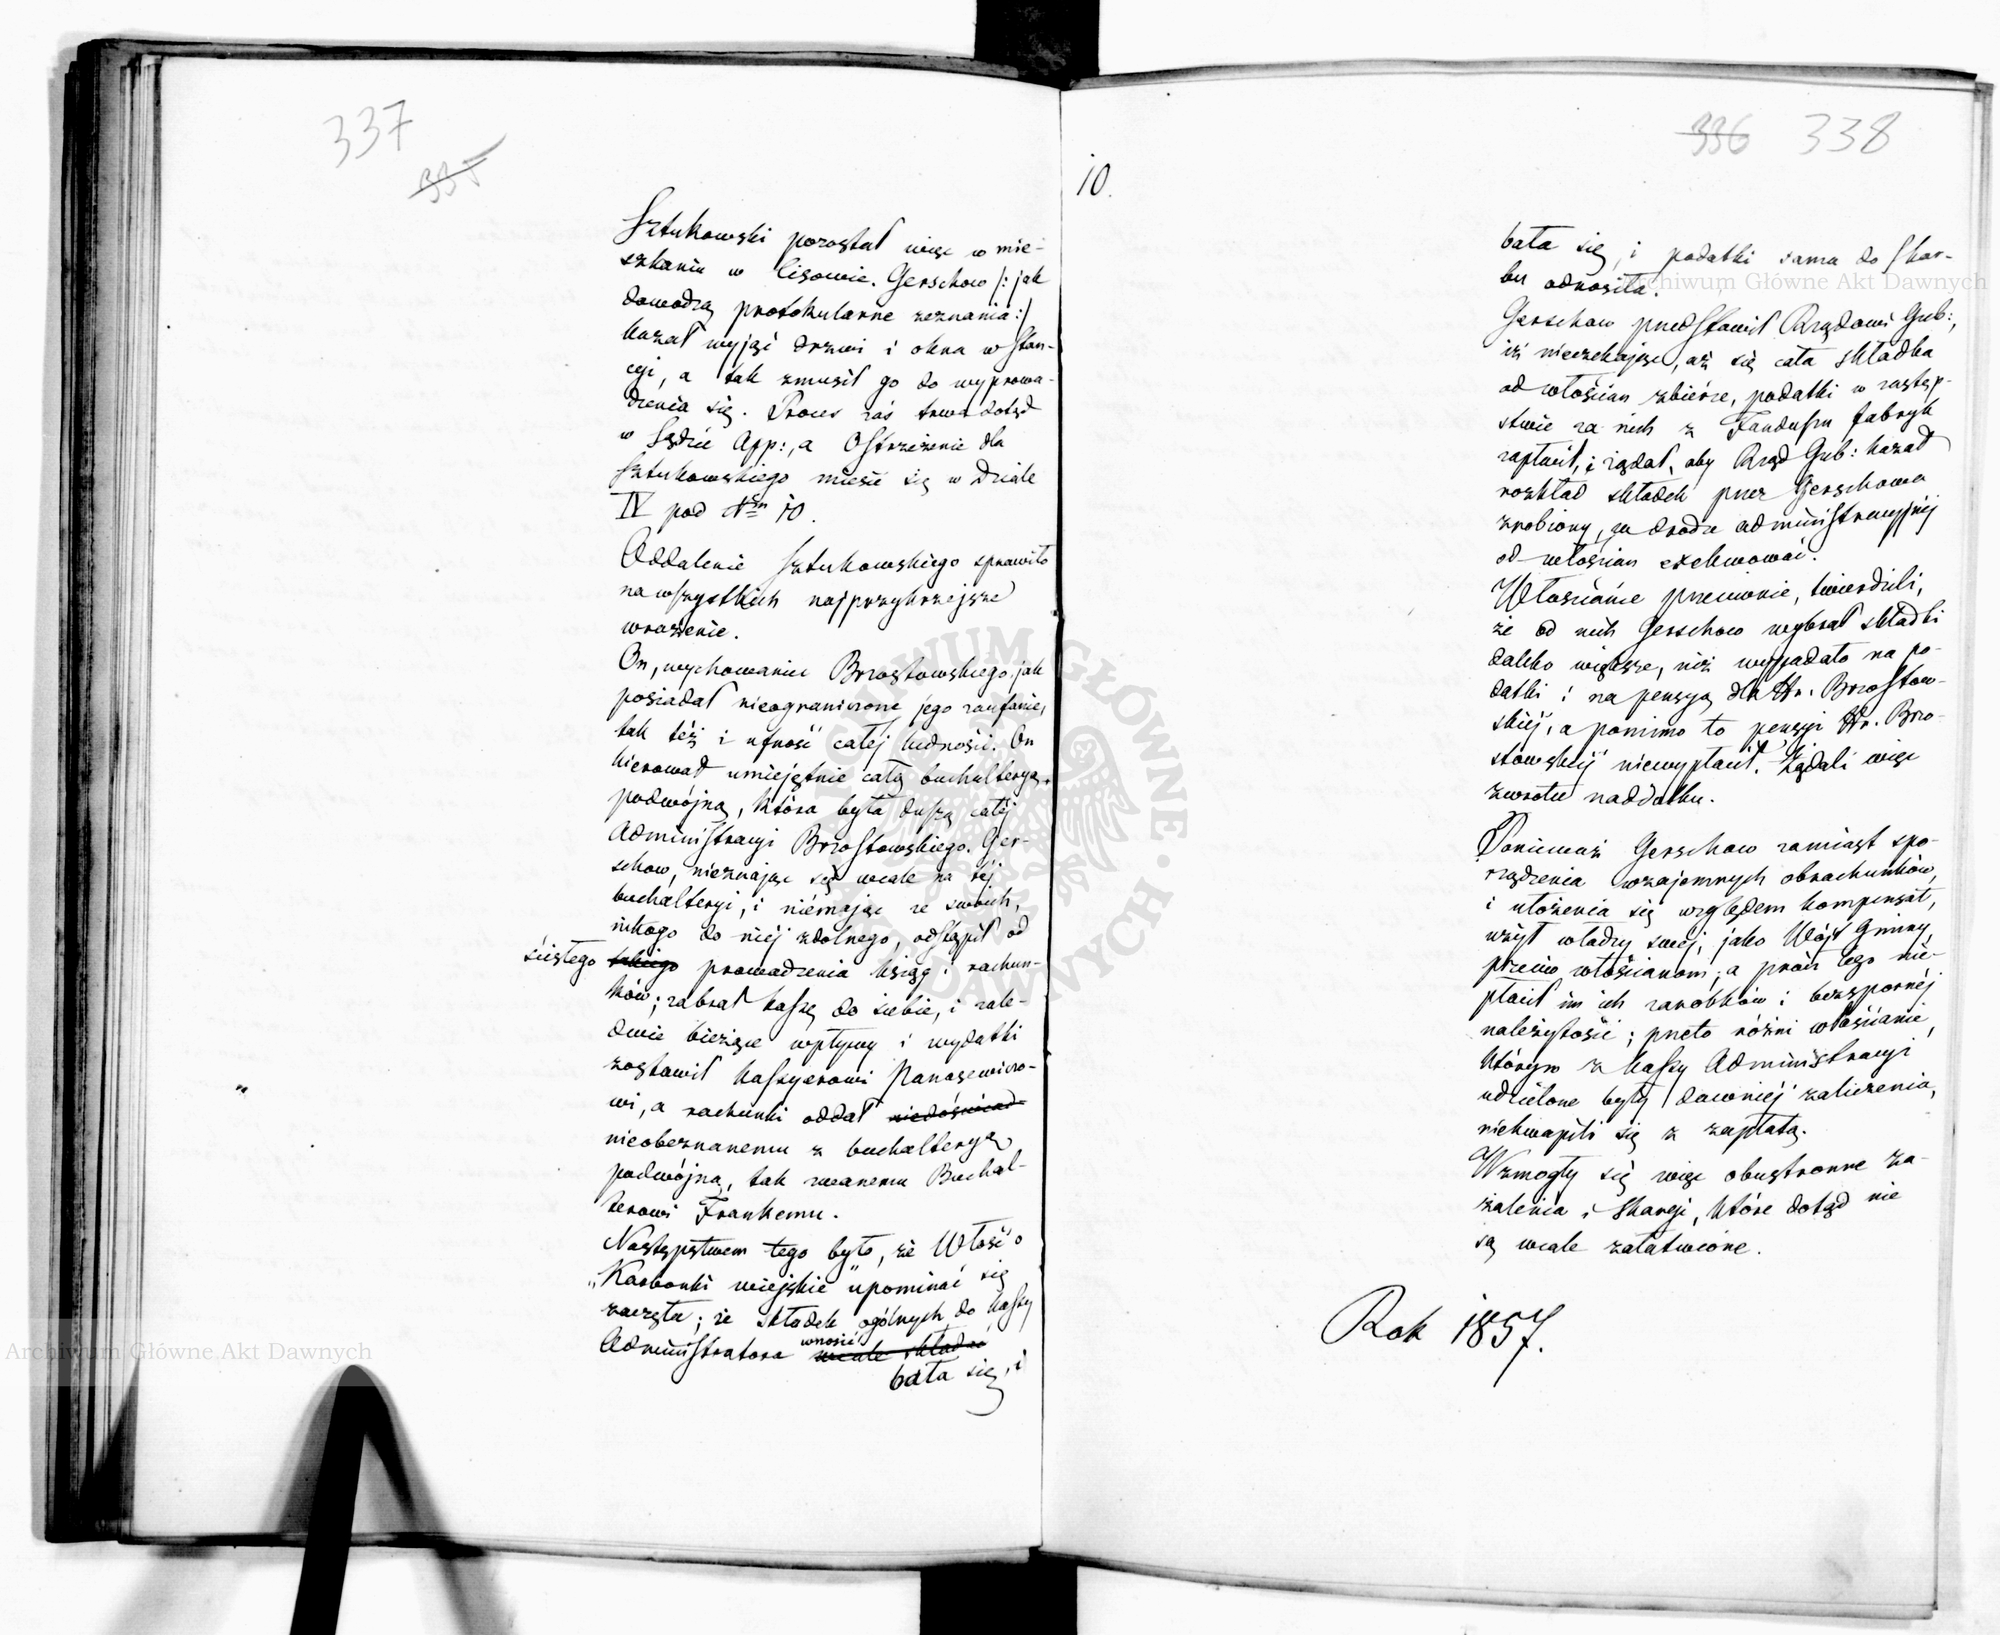 337
335
Sztukowski pozostał więc w mie-
szkaniu w Cisowie. Gerschow /: jak
dowodzą protokularne zeznania :/
kazał wyjąć drzwi i okna w Stan-
cyi, a tak zmusił go do wyprowa-
dzenia się. Proces zaś trwa dotąd
w Sądzie App:, a Ostrzeżenie dla
Sztukowskiego mieści się w Dziale
IV pod Nrm 10.
Oddalenie Sztukowskiego sprawiło
na wszystkich najprzykrzejsze
wrażenie.
On, wychowaniec Brzostowskiego, jak
posiadał nieograniczone jego zaufanie,
tak też i ufność całej ludności. On
kierował umiejętnie całą buchalteryą
podwójną, która była duszą całéj
Administracyi Brzostowskiego. Ger-
schow, nieznając się wcale na téj
buchalteryi, i niémając ze swoich,
nikogo do niéj zdolnego, odstąpił od
ścisłego prowadzenia ksiąg i rachun-
ków; zabrał kassę do siebie, i zale-
dwie bieżące wpływy i wydatki
zostawił kassyerowi Panasewiczo-
wi, a rachunki oddał niedoświad-
nieobeznanemu z buchalteryą
podwójną, tak zwanemu Buchal-
terowi Frankemu.
Następstwem tego było, że Włość o
„Karbonki wiejskie" upominać się
zaczęła; że składek ogólnych do kassy
Administratora wnosić wcale składać
bała się, i
10.
336 338
bała się, i podatki sama do Skar-
bu odnosiła.
Gerschow przedstawił Rządowi Gub:,
iż nieczekając, aż się cała składka
od włościan zbierze, podatki w zastęp-
stwie za nich z Funduszu fabryk
zapłacił, i żądał, aby Rząd Gub: kazał
rozkład składek przez Gerschowa
zrobiony, na drodze administracyjnéj
od włościan exekwować.
Włościanie przeciwnie, twierdzili,
że od nich Gerschow wybrał składki
daleko większe, niż wypadało na po-
datki i na pensyą dla Hr. Brzostow-
skiéj, a pomimo to pensyi Hr. Brzo-
stowskiéj niewypłacił. Żądali więc
zwrotu naddatku.
Ponieważ Gerschow zamiast spo-
rządzenia wzajemnych obrachunków,
i ułożenia się względem kompensat,
użył władzy swéj, jako Wójt Gminy,
przeciw włościanom; a prócz tego nie-
płacił im ich zarobków i bezspornéj
należytości; przeto różni włościanie,
którym z kassy Administracyi
udzielone były dawniéj zaliczenia,
niekwapili się z zapłatą.
Wzmogły się więc obustronne za-
żalenia i skargi, które dotąd nie
są wcale załatwione.
Rok 1857.
Archiwum Główne Akt Dawnych
Archiwum Główne Akt Dawnych
ARCHIWUM GŁÓWNE AKT DAWNYCH